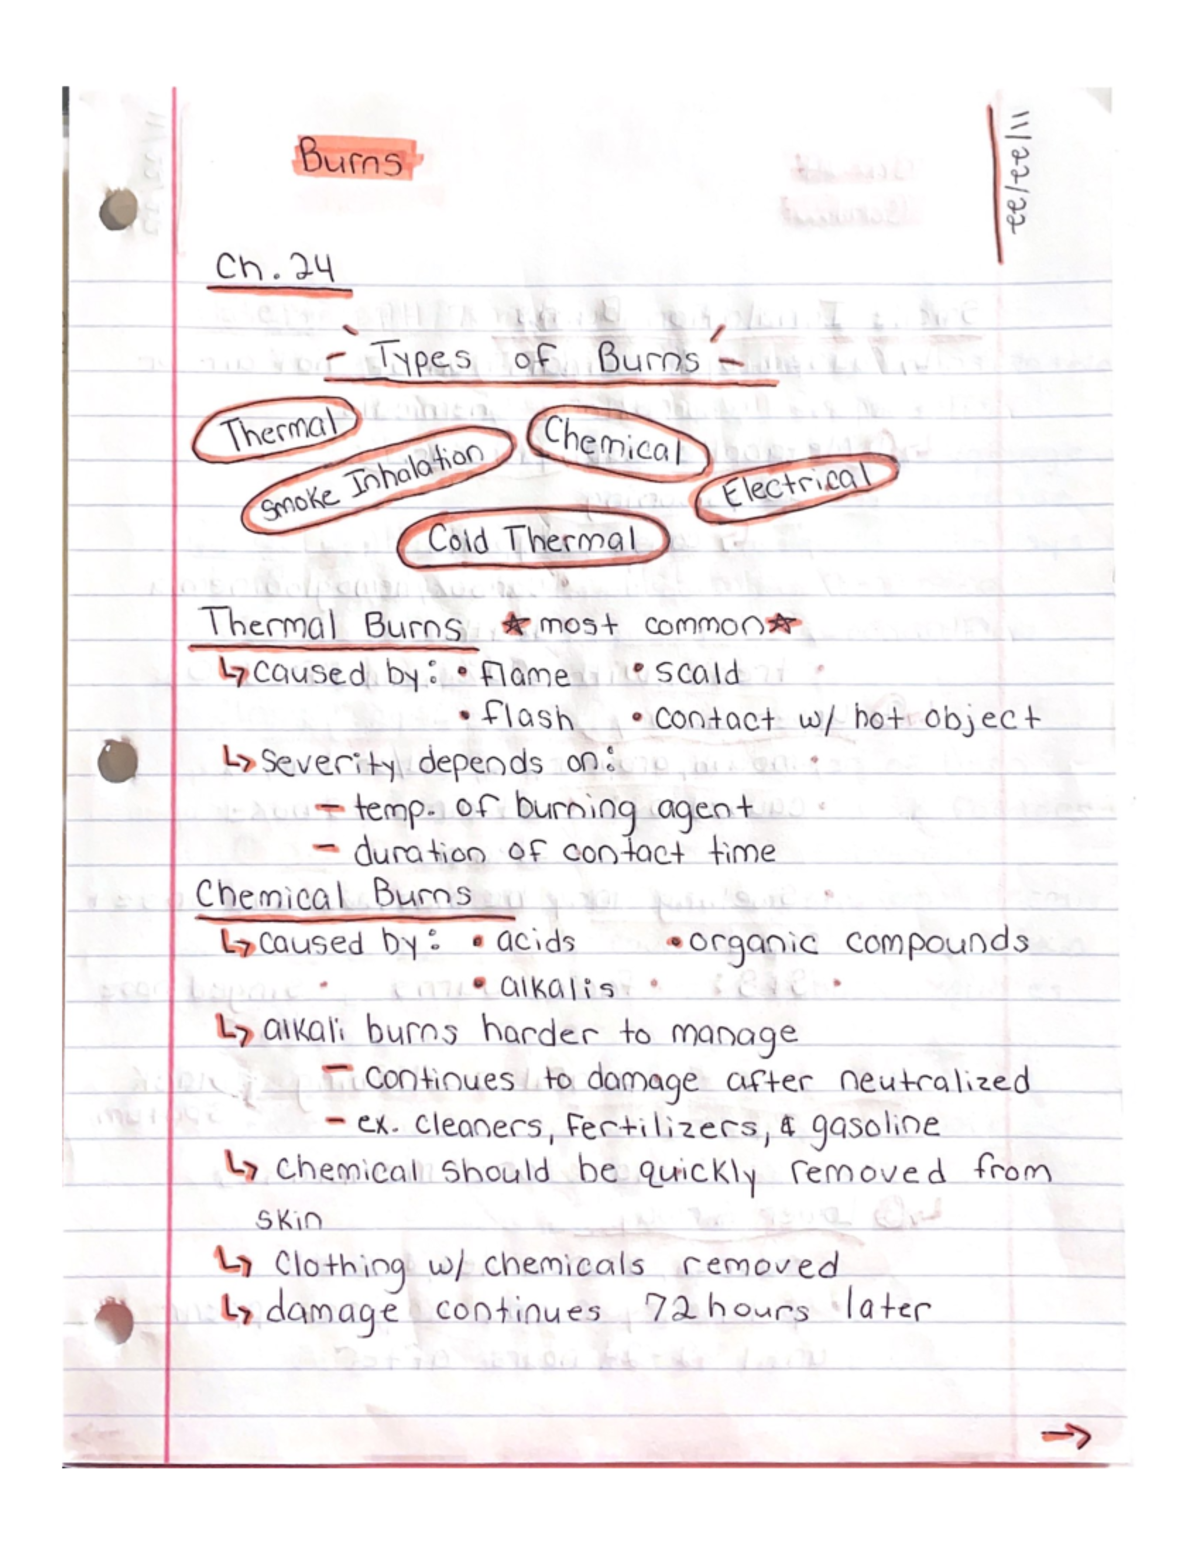 Burns
11/22/22
Ch. 24
- Types of Burns -
Thermal
Chemical
Smoke Inhalation
Electrical
Cold Thermal
Thermal Burns ☆most common☆
↳ caused by: • flame • scald
• flash • contact w/ hot object
↳ Severity depends on:
- temp. of burning agent
- duration of contact time
Chemical Burns
↳ caused by: • acids • organic compounds
• alkalis
↳ alkali burns harder to manage
- continues to damage after neutralized
- ex. cleaners, fertilizers, & gasoline
↳ chemical should be quickly removed from
skin
↳ Clothing w/ chemicals removed
↳ damage continues 72 hours later
→